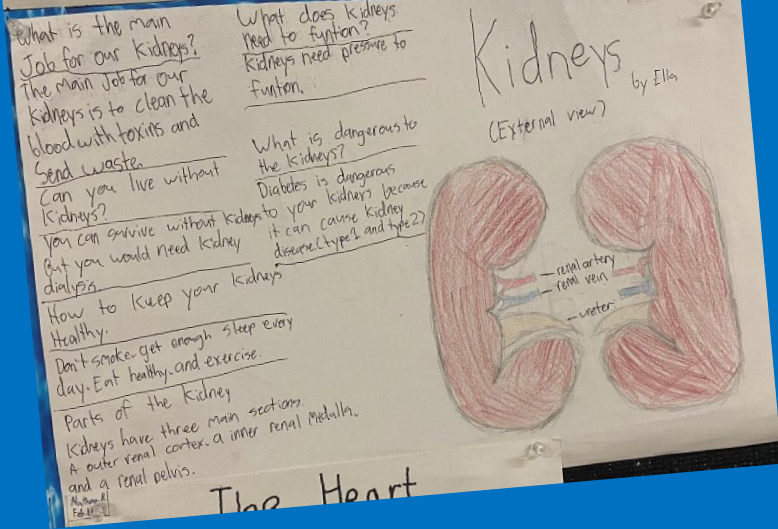 What is the main
Job for our kidneys?
The main Job for our
kidneys is to clean the
blood with toxins and
Send waste.
Can you live without
kidneys?
you can survive without kidneys
But you would need kidney
dialysis.
How to keep your kidneys
Healthy.
Don't smoke. get enough sleep every
day. Eat healthy. and exercise.
Parts of the kidney
Kidneys have three main sections.
A outer renal cortex. a inner renal Medulla.
and a renal pelvis.
What does kidneys
need to funtion?
kidneys need pressure to
funtion.
What is dangerous to
the kidneys?
Diabetes is dangerous
to your kidneys because
it can cause kidney
disease. (type 1 and type 2)
Kidneys
by Ella
(External view)
renal artery
renal vein
ureter
The Heart